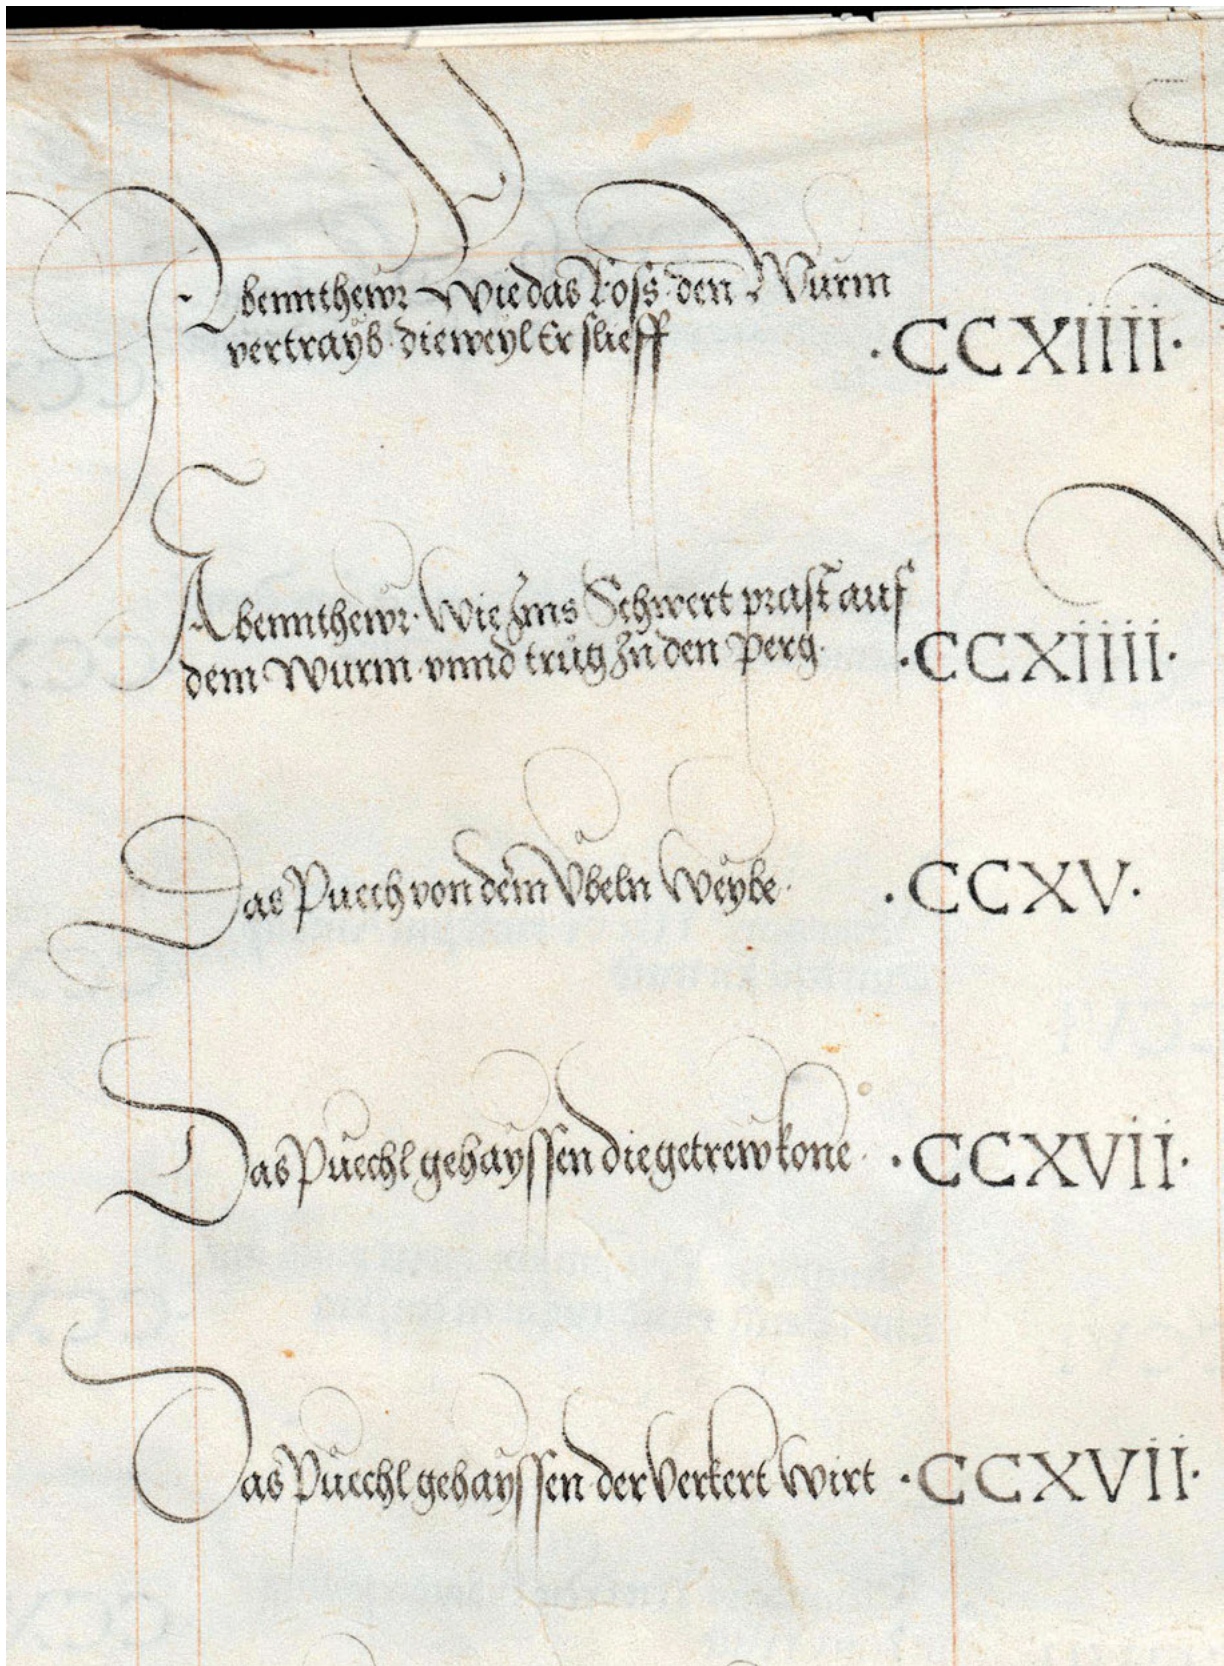 Abennthewr Wie das Ross den Wurm
vertrayb dieweyl Er slieff ·CCXIIII·
Abennthewr· Wie Jms Schwert prast auf
dem Wurm vnnd trůg Jn den perg· ·CCXIIII·
Das Puech von dem Vbeln Weybe· ·CCXV·
Das Puechl gehayssen die getrew kone· ·CCXVII·
Das Puechl gehayssen der Verkert Wirt ·CCXVII·